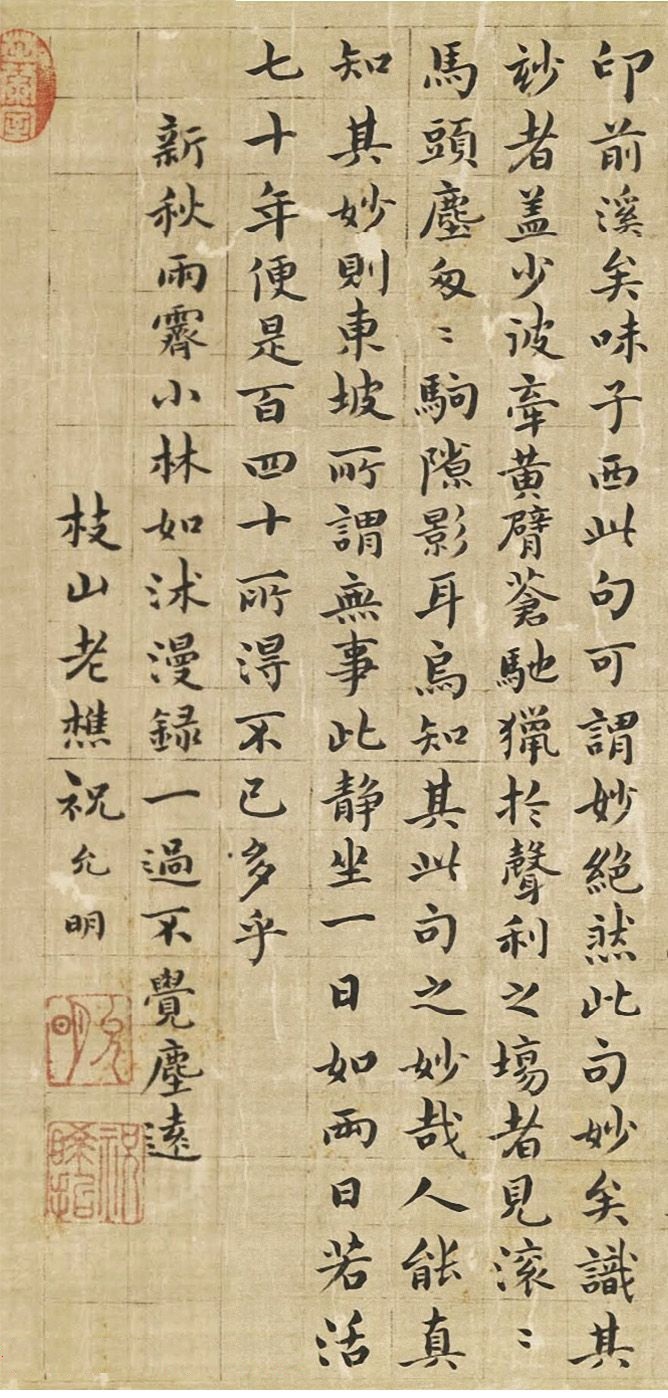 印前溪矣味子西此句可謂妙絕然此句妙矣識其
玅者盖少彼牽黃臂蒼馳獵於聲利之場者見滚〻
馬頭塵匆〻駒隙影耳烏知其此句之妙哉人能真
知其妙則東坡所謂無事此静坐一日如兩日若活
七十年便是百四十所得不已多乎
新秋雨霽小林如沐漫録一過不覺塵遠
枝山老樵祝允明
允明